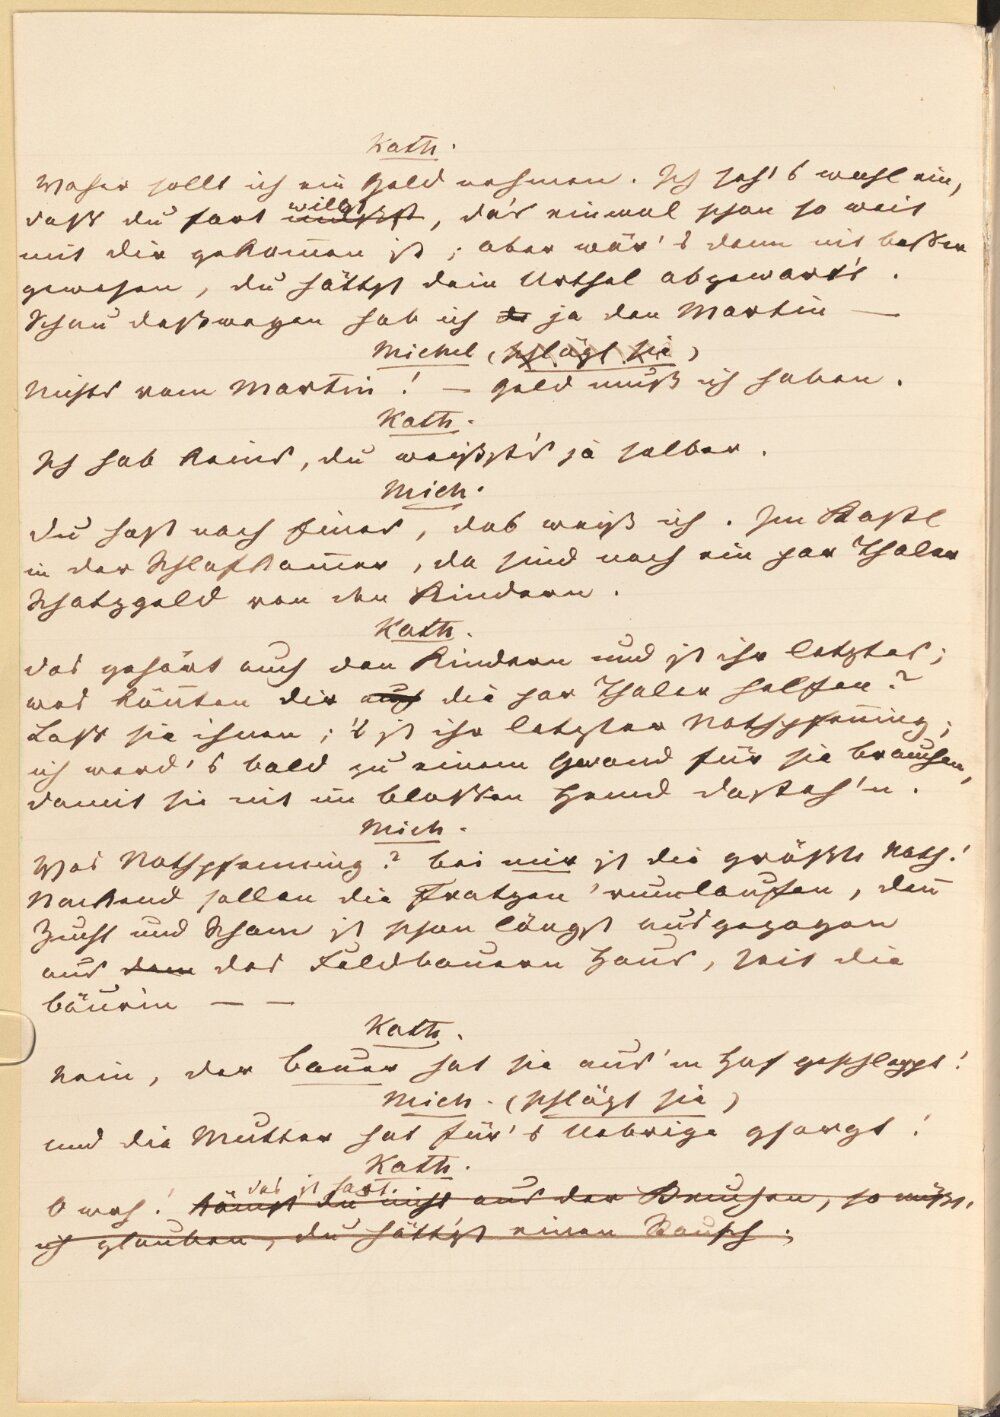 Kath.
Woher sollt ich ein Geld nehmen. Ich seh's wohl ein,
daß du fort mußt willst, da's einmal schon so weit
mit dir gekom̄en ist; aber wär's denn nit besser
gewesen, du hättst dein Urthel abgewart't.
Schau deßwegen hab ich de ja den Martin —
Michel (schlägt sie)
Nichts vom Martin! — Geld muß ich haben.
Kath.
Ich hab keins, du weißt's ja selber.
Mich.
Du hast noch Eines, das weiß ich. Im Kastl
in der Schlafkam̄er, da sind noch ein par Thaler
Schatzgeld von den Kindern.
Kath.
Das gehört auch den Kindern und ist ihr letztes;
was kön̄ten dir auch die par Thaler helfen?
Laß sie ihnen; 's ist ihr letzter Nothpfen̄ing;
ich werd's bald zu einem Gwand für sie brauchen,
damit sie nit im bloßen Hemd dasteh'n.
Mich.
Was Nothpfenning? bei mir ist die größte Noth!
Nackend sollen die Fratzen 'rumlaufen, den̄
Zucht und Scham ist schon längst ausgezogen
aus dem des Feldbauern Haus, seit die
Bäurin — —
Kath.
Nein, der Bauer hat sie aus'm Hof geschleppt!
Mich. (schlägt sie)
und die Mutter hat für's Uebrige gsorgt!
Kath.
O weh! das ist hart. kämst du nicht aus der Keuchen, so müßt
ich glauben, du hättst einen Rausch;